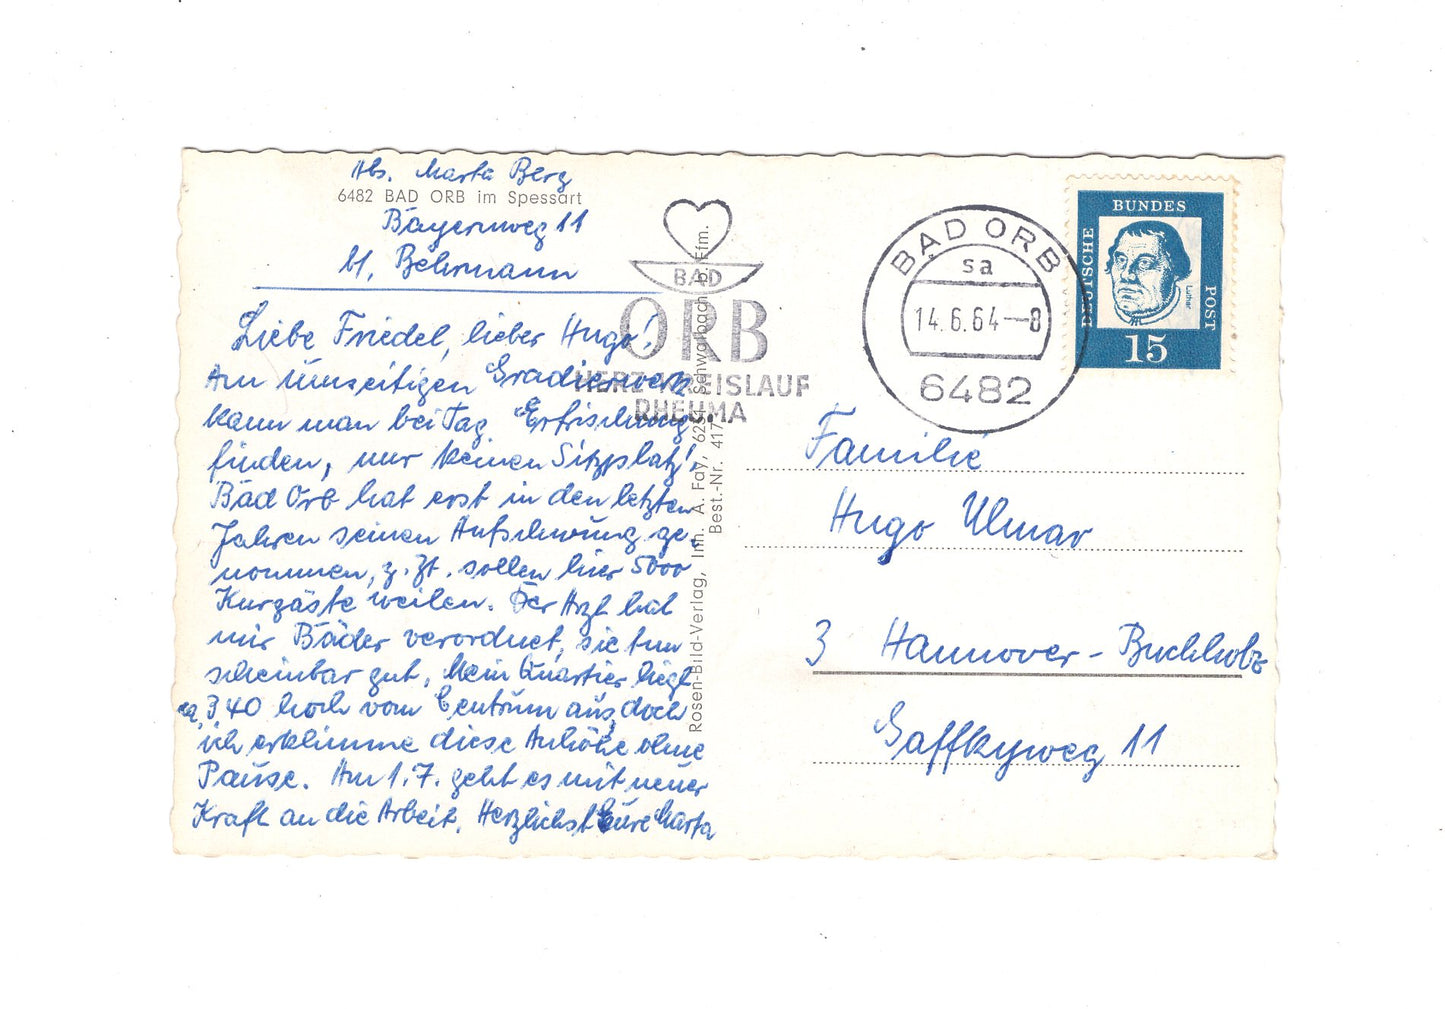 Abs. Marta Berg
6482 BAD ORB im Spessart
Bayernweg 11
bt. Behrmann
Liebe Friedel, lieber Hugo!
Am umseitigen Gradierwerk
kann man bei Tag Erfrischung
finden, nur keinen Sitzplatz!
Bad Orb hat erst in den letzten
Jahren seinen Aufschwung ge-
nommen, z. Zt. sollen hier 5000
Kurgäste weilen. Der Arzt hat
mir Bäder verordnet, sie tun
scheinbar gut. Mein Quartier liegt
ca. 340 hoch vom Centrum aus, doch
ich erklimme diese Anhöhe ohne
Pause. Am 1.7. geht es mit neuer
Kraft an die Arbeit. Herzlichst Eure Marta
Rosen-Bild-Verlag, Inh. A. Fay, 6234 Schwalbach b. Ffm.
Best.-Nr. 417
BAD
ORB
HERZ KREISLAUF
RHEUMA
BAD ORB
sa
14.6.64—8
6482
DEUTSCHE
BUNDES
POST
Luther
15
Familie
Hugo Ulmar
3 Hannover-Buchholz
Gaffkyweg 11